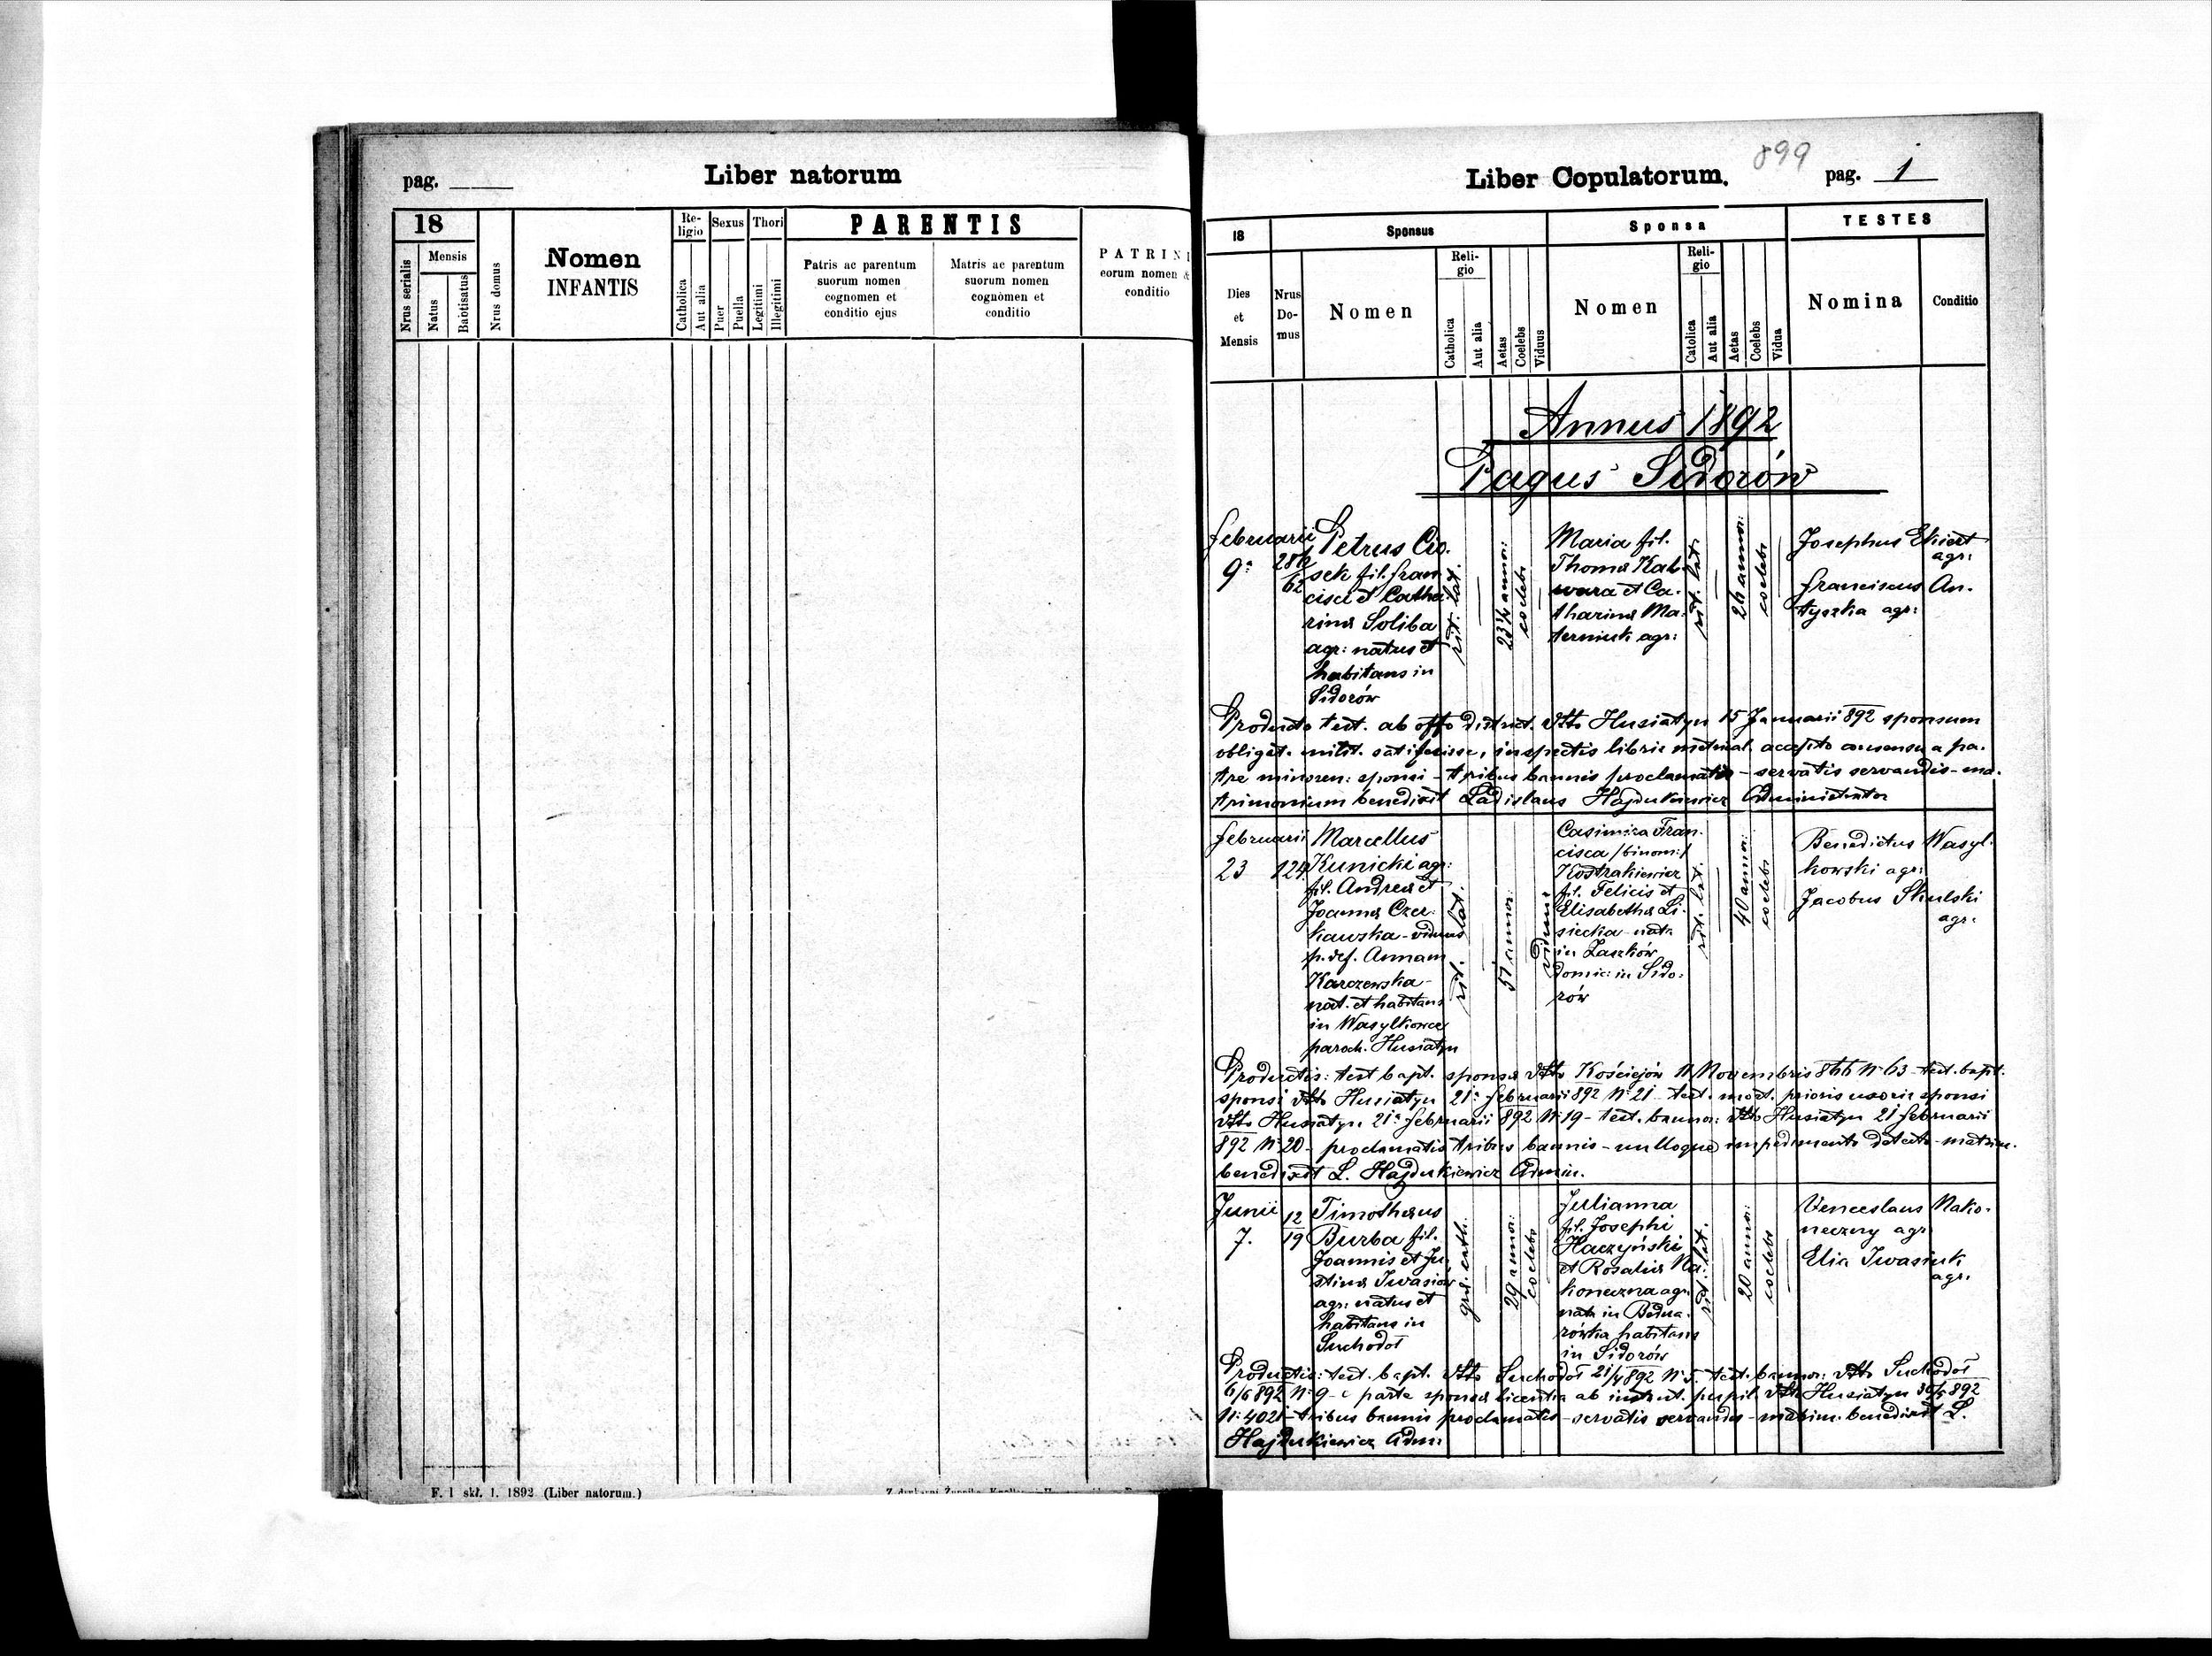 pag.
Liber natorum
18
Mensis
Nrus serialis
Natus
Baptisatus
Nrus domus
Nomen
INFANTIS
Re-
ligio
Catholica
Aut alia
Sexus
Puer
Puella
Thori
Legitimi
Illegitimi
PARENTIS
Patris ac parentum
suorum nomen
cognomen et
conditio ejus
Matris ac parentum
suorum nomen
cognomen et
conditio
PATRINI
eorum nomen &
conditio
F. 1 skł. 1. 1892 (Liber natorum.)
899
Liber Copulatorum.
pag. 1
18
Dies
et
Mensis
Nrus
Do-
mus
Sponsus
Nomen
Reli-
gio
Catholica
Aut alia
Aetas
Coelebs
Viduus
Sponsa
Nomen
Reli-
gio
Catolica
Aut alia
Aetas
Coelebs
Vidua
TESTES
Nomina
Conditio
Annus 1892
Pagus Sidorów
februarii
9a
62
Petrus Cio-
sek fil. fran
cisci et Catha
rinæ Soliba
agr: natus et
habitans in
Sidorów
rit. lat.
23½ annor:
coelebs
Maria fil.
Thomæ Kal-
wara et Ca-
tharinæ Ma-
terniuk agr:
rit. lat.
26 annor:
coelebs
Josephus Ekiert
agr:
franciscus An-
tyszka agr:
Producto test. ab offo district. dtto Husiatyn 15 Januarii 892 sponsum
obligat. milit. satisfecisse, inspectis libris metrical. accepto consensu a pa-
tre minoren: sponsi - tribus bannis proclamatis - servatis servandis - ma-
trimonium benedixit Ladislaus Hajdukiewicz Administrator
februarii
23
124
Marcellus
Kunicki agr:
fil. Andreæ et
Joannæ Czer-
kawska - viduus
p. def. Annam
Karczewska -
nat. et habitans
in Wasylkowce
paroch. Husiatyn
rit. lat.
51 annor:
viduus
Casimira Fran-
cisca /binom:/
Kostrakiewicz
fil. Felicis et
Elisabethæ Li-
siecka - nata
in Zaszków
domic: in Sido-
rów
rit. lat.
40 annor:
coelebs
Benedictus Wasyl-
kowski agr:
Jacobus Skulski
agr:
Productis: test bapt. sponsæ dtto Kościejów 11 Novembris 866 No 63 - test. bapt.
sponsi dtto Husiatyn 21a februarii 892 No 21 - test. mort. prioris uxoris sponsi
dtto Husiatyn 21a februarii 892 No 19 - test. bannor: dtto Husiatyn 21 februarii
892 No 20 - proclamatis tribus bannis - nulloque impedimento detecto - matrim.
benedixit L. Hajdukiewicz Admin.
Junii
7.
12
19
Timotheus
Burba fil.
Joannis et Ju-
stinæ Iwasiów
agr: natus et
habitans in
Suchodół
gr. cath.
29 annor:
coelebs
Julianna
fil. Josephi
Haczyński
et Rosaliæ Na-
koneczna agr.
nata in Bedna-
rówka habitans
in Sidorów
rit. lat.
20 annor:
coelebs
Venceslaus Nako-
neczny agr
Elia Iwasiuk
agr:
Productis: test. bapt. dtto Suchodół 21/4 892 No 5. test. bannor: dtto Suchodół
6/6 892 No 9 - e parte sponsæ licentia ab instut. pupil. dtto Husiatyn 30/5 892
No 4021 - tribus bannis proclamatis - servatis servandis - matrim. benedixit L.
Hajdukiewicz Adm: